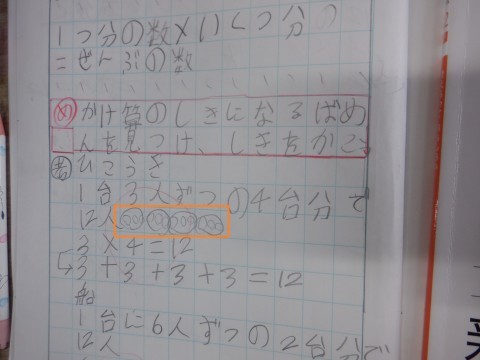 1つ分の数×いくつ分の
=ぜんぶの数
め かけ算のしきになるばめ
んを見つけ、しきをかこう
考 ひこうき
1台3人ずつの4台分で
12人
3×4=12
3+3+3+3=12
船
1台に6人ずつの2台分で
12人